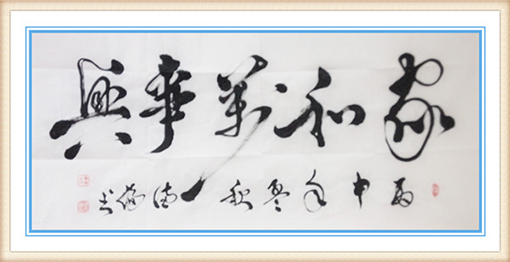 家和萬事興
丙申年 秋 书